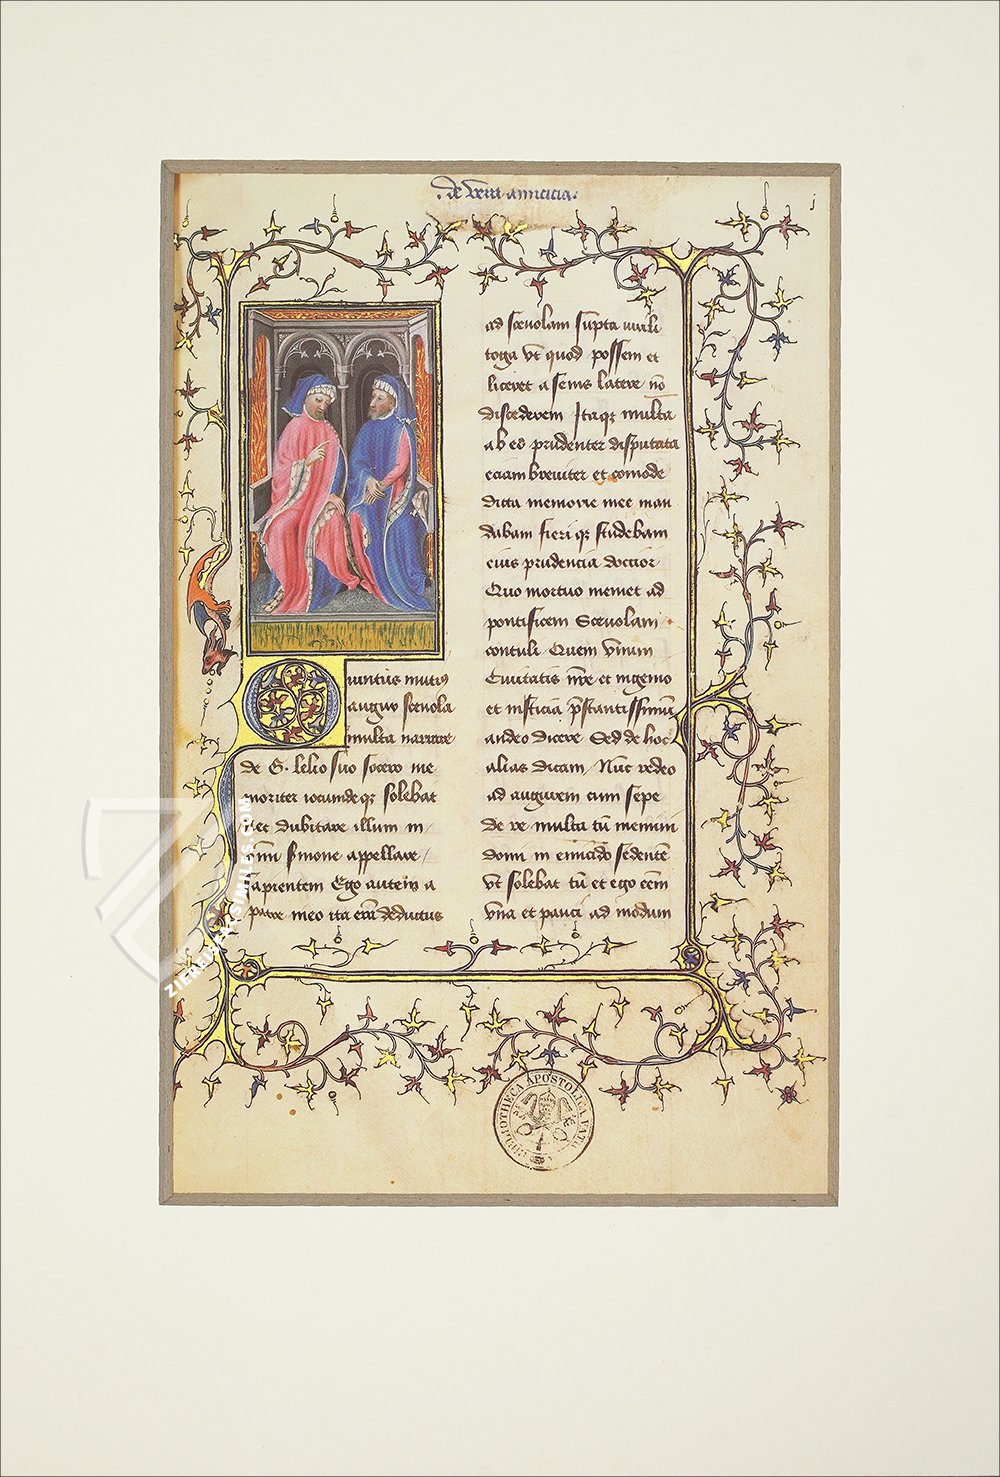 . de vera amicicia .
j
Quintus mutius
augur scevola
multa narrare
de G. lelio suo socero me
moriter iocundeqꝫ solebat
nec dubitare illum in
omni simone appellare /
sapientem Ego autem a
patre meo ita erā deductus
ad scevolam supta uirili
toga vt quod possem et
liceret a senis latere nō
discederem Itaqꝫ multa
ab eo prudenter disputata
eciam breuiter et comode
dicta memorie mee man
dabam fieri qꝫ studebam
eius prudencia doccior
Quo mortuo memet ad
pontificem Scevolam
contuli Quem vnum
Ciuitatis nr̄e et ingenio
et iusticia p̄stantissimū
audeo dicere Sed de hoc
alias dicam / Nūc redeo
ad augurem cum sepe
de re multa tū memini
domi in emiciclo sedentē
vt solebat tū et ego eēm
vna et pauci ad modum
BIBLIOTHECA APOSTOLICA VATIC
ZIEREIS FACSIMILES.COM